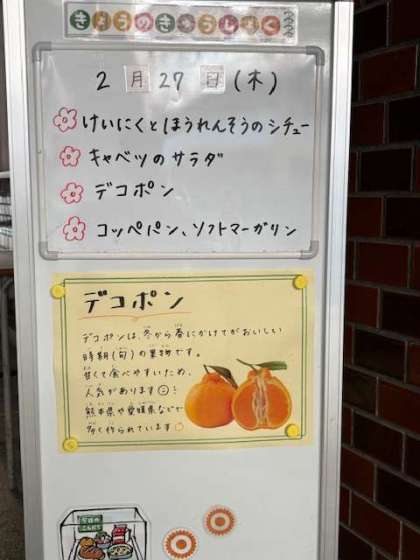 きょうのきゅうしょく
2月27日(木)
けいにくとほうれんそうのシチュー
キャベツのサラダ
デコポン
コッペパン、ソフトマーガリン
デコポン
デコポンは、冬から春にかけてがおいしい
時期(旬)の果物です。
甘くて食べやすいため、
人気があります!
熊本県や愛媛県などで
多く作られています